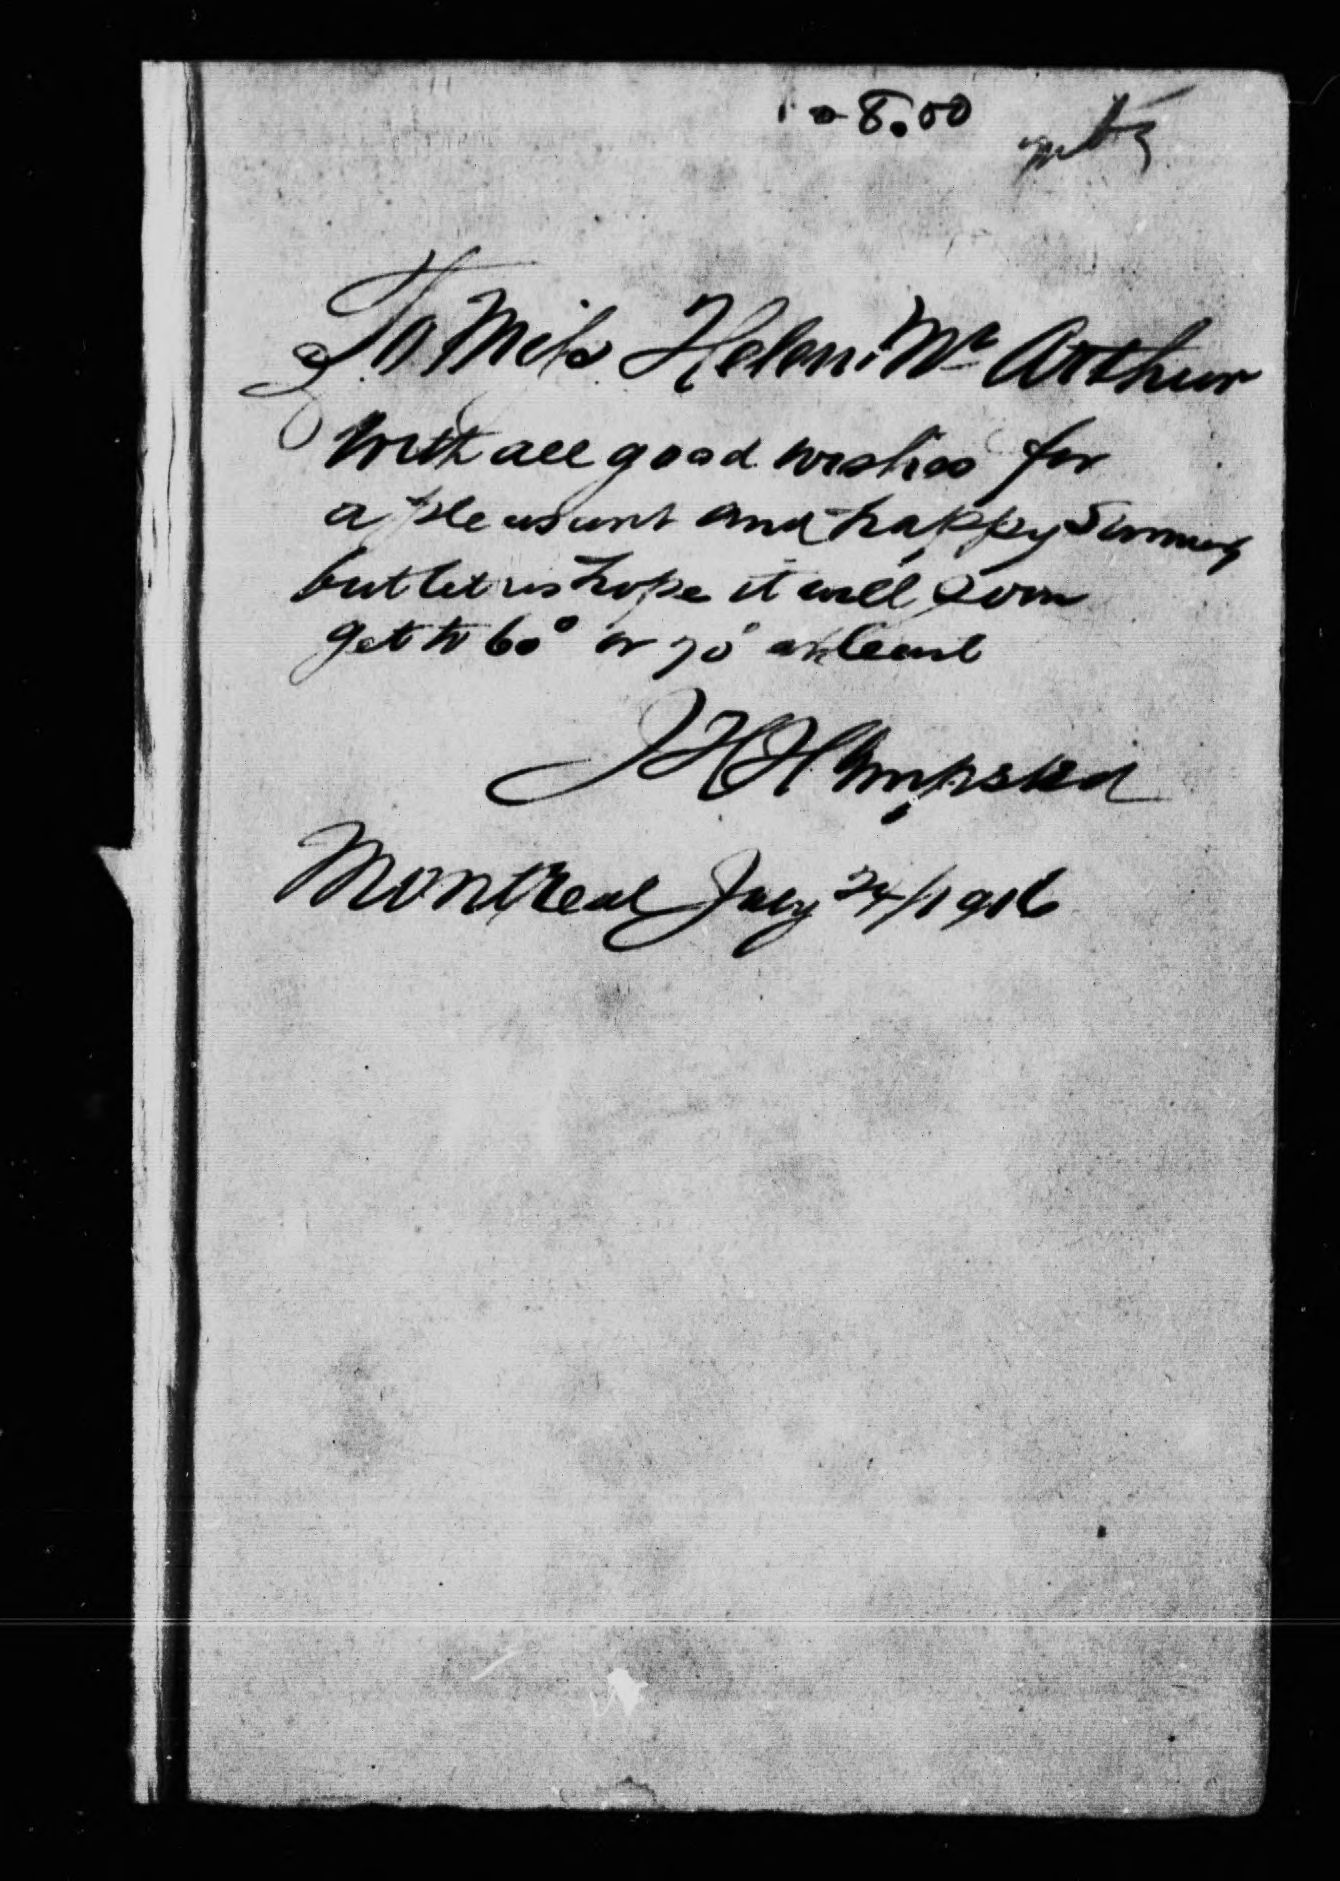 8.00
To Miss Helen Mc Arthur
With all good wishes for
a pleasant and happy Summer
but let us hope it will soon
get to 60° or 70° at least
J H Hempsted
Montreal July 24/1916